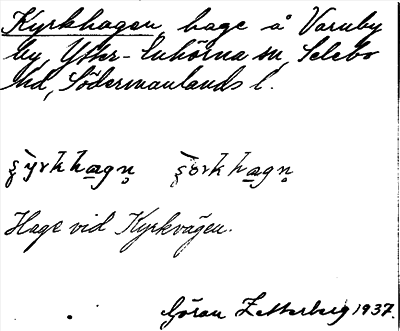 Kyrkhagen, hage å Varnby
by, Ytter-Enhörna sn, Selebo
hd, Södermanlands l.
Hage vid Kyrkvägen.
Göran Zetterberg 1937.